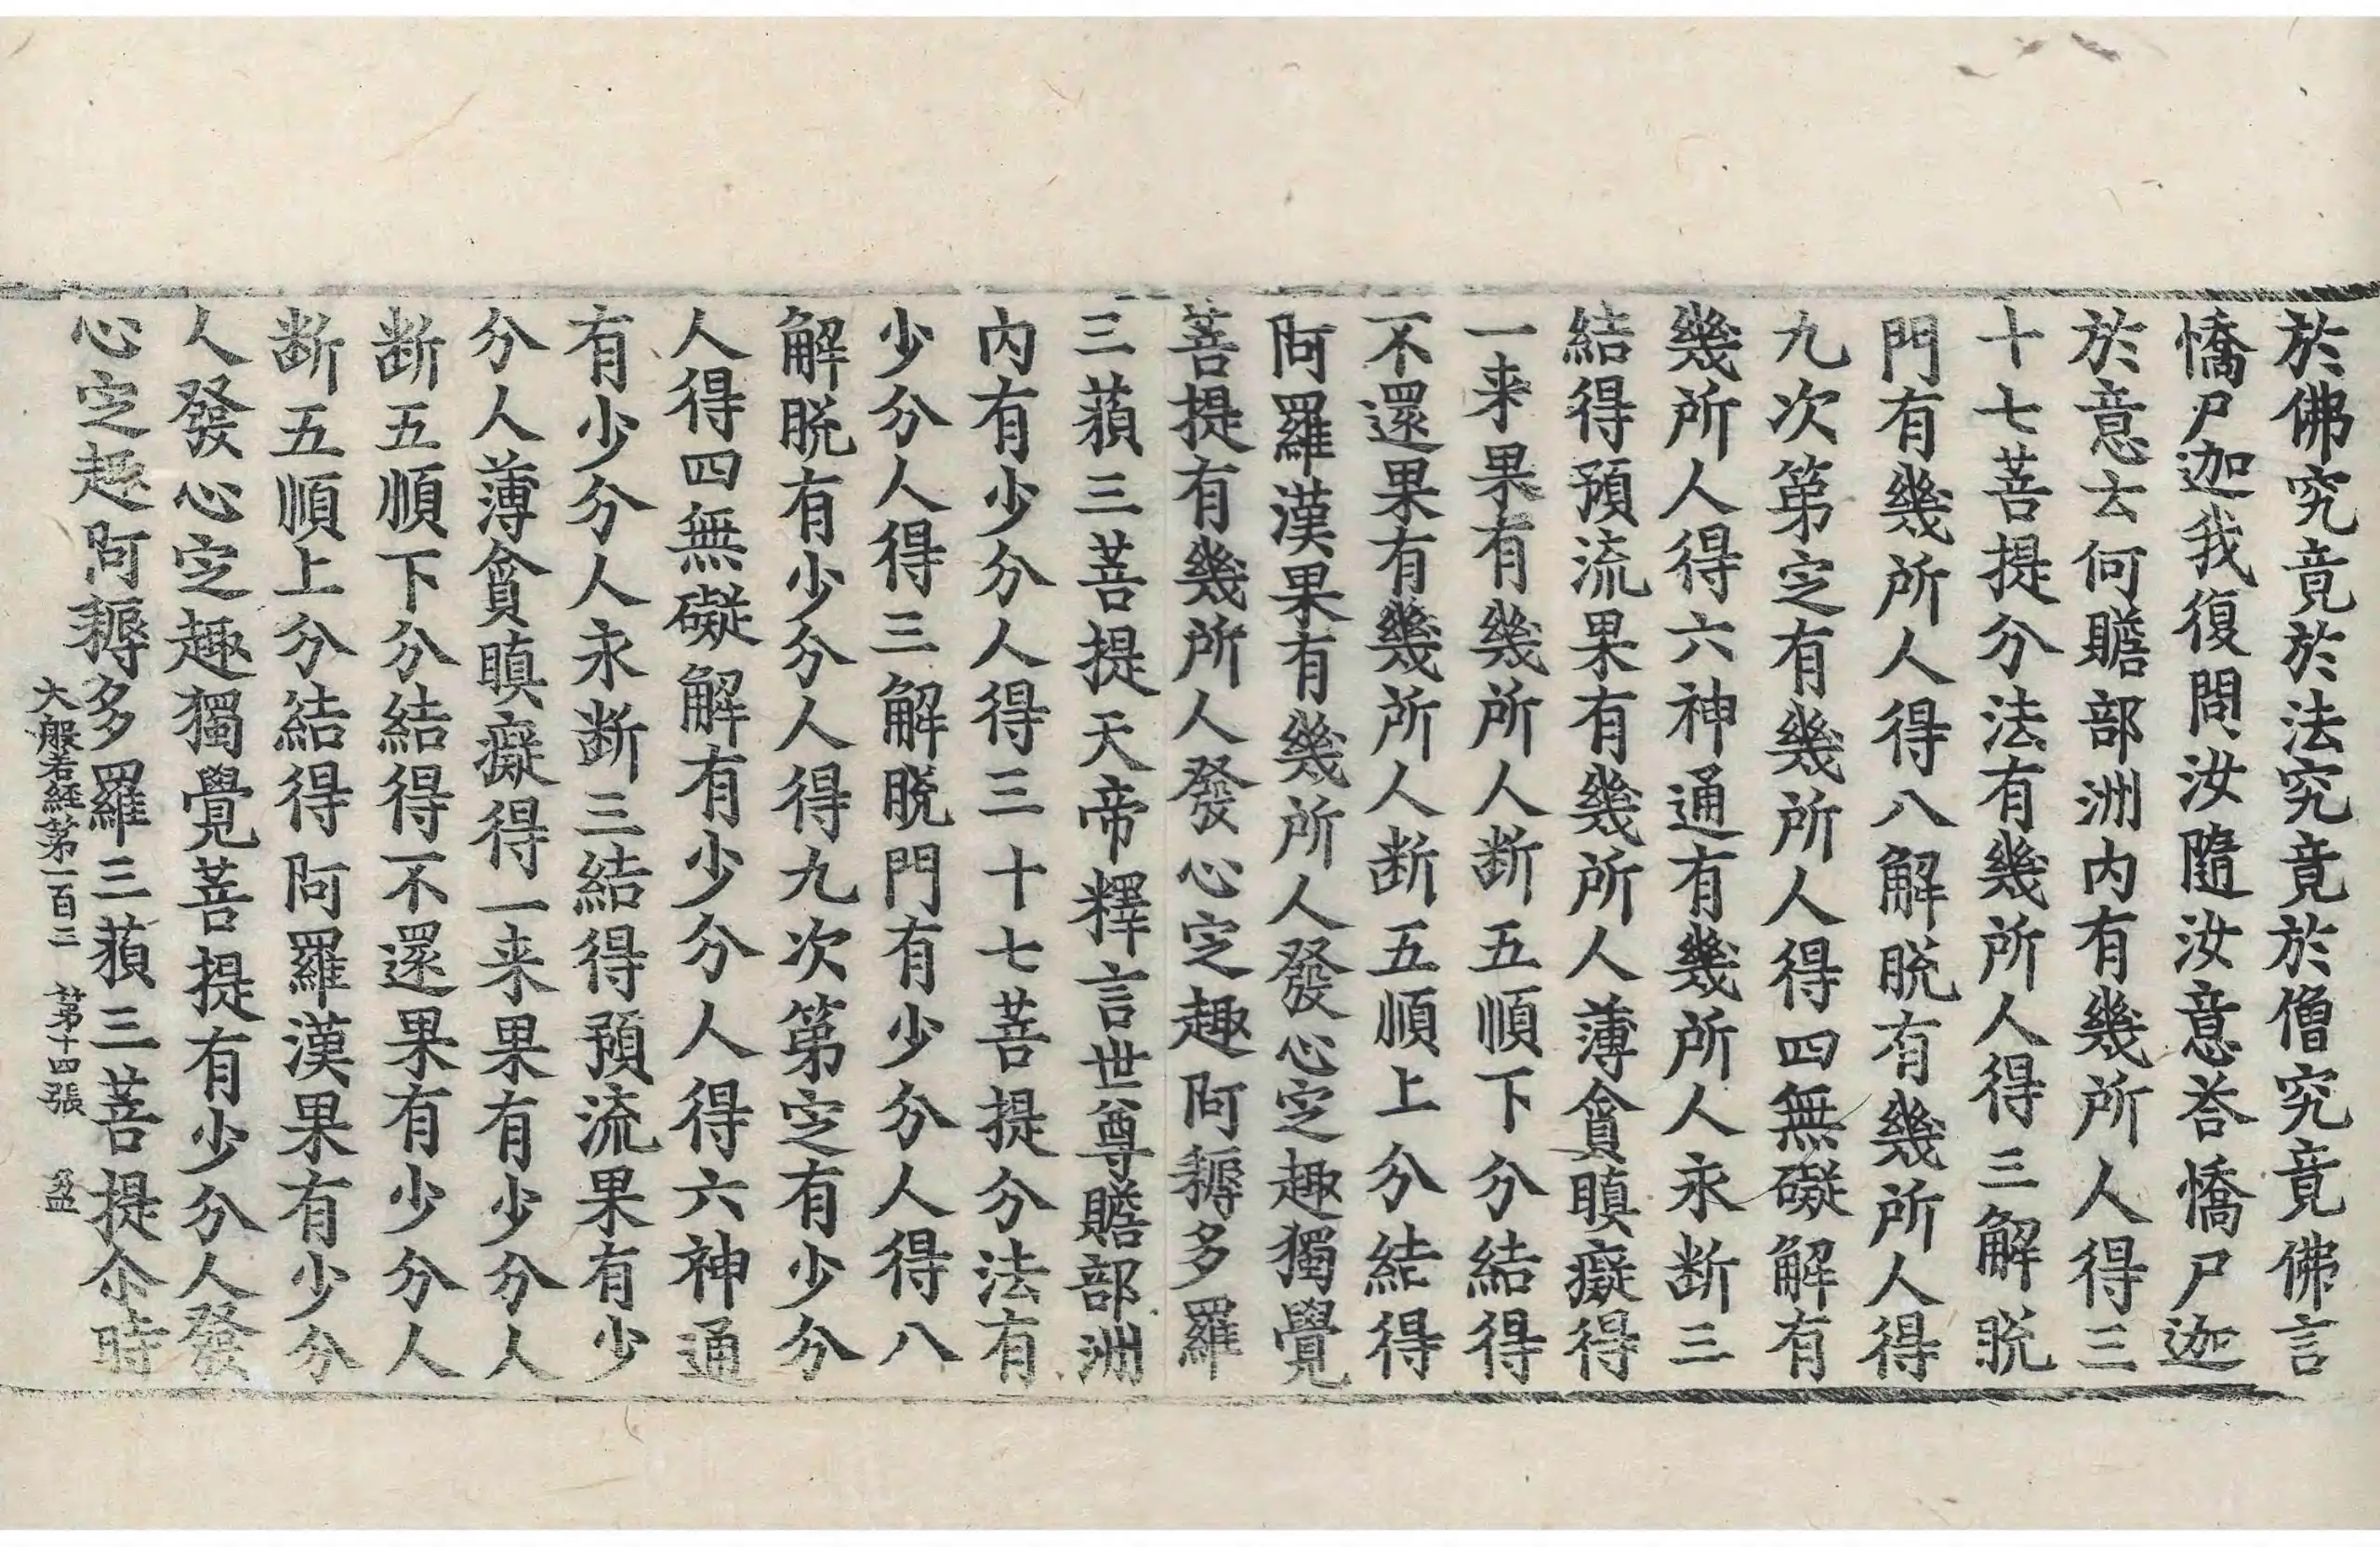 於佛究竟於法究竟於僧究竟佛言
憍尸迦我復問汝隨汝意荅憍尸迦
於意云何贍部洲内有幾所人得三
十七菩提分法有幾所人得三解脫
門有幾所人得八解脫有幾所人得
九次第㝎有幾所人得四無礙解有
幾所人得六神通有幾所人永断三
結得預流果有幾所人薄貪瞋癡得
一来果有幾所人断五順下分結得
不還果有幾所人断五順上分結得
阿羅漢果有幾所人發心㝎趣獨覺
菩提有幾所人發心㝎趣阿耨多羅
三藐三菩提天帝釋言世尊贍部洲
内有少分人得三十七菩提分法有
少分人得三解脫門有少分人得八
解脫有少分人得九次第㝎有少分
人得四無礙解有少分人得六神通
有少分人永断三結得預流果有少
分人薄貪瞋癡得一来果有少分人
断五順下分結得不還果有少分人
断五順上分結得阿羅漢果有少分
人發心㝎趣獨覺菩提有少分人發
心㝎趣阿耨多羅三藐三菩提尒時
大般若経第一百三 第十四張 盈